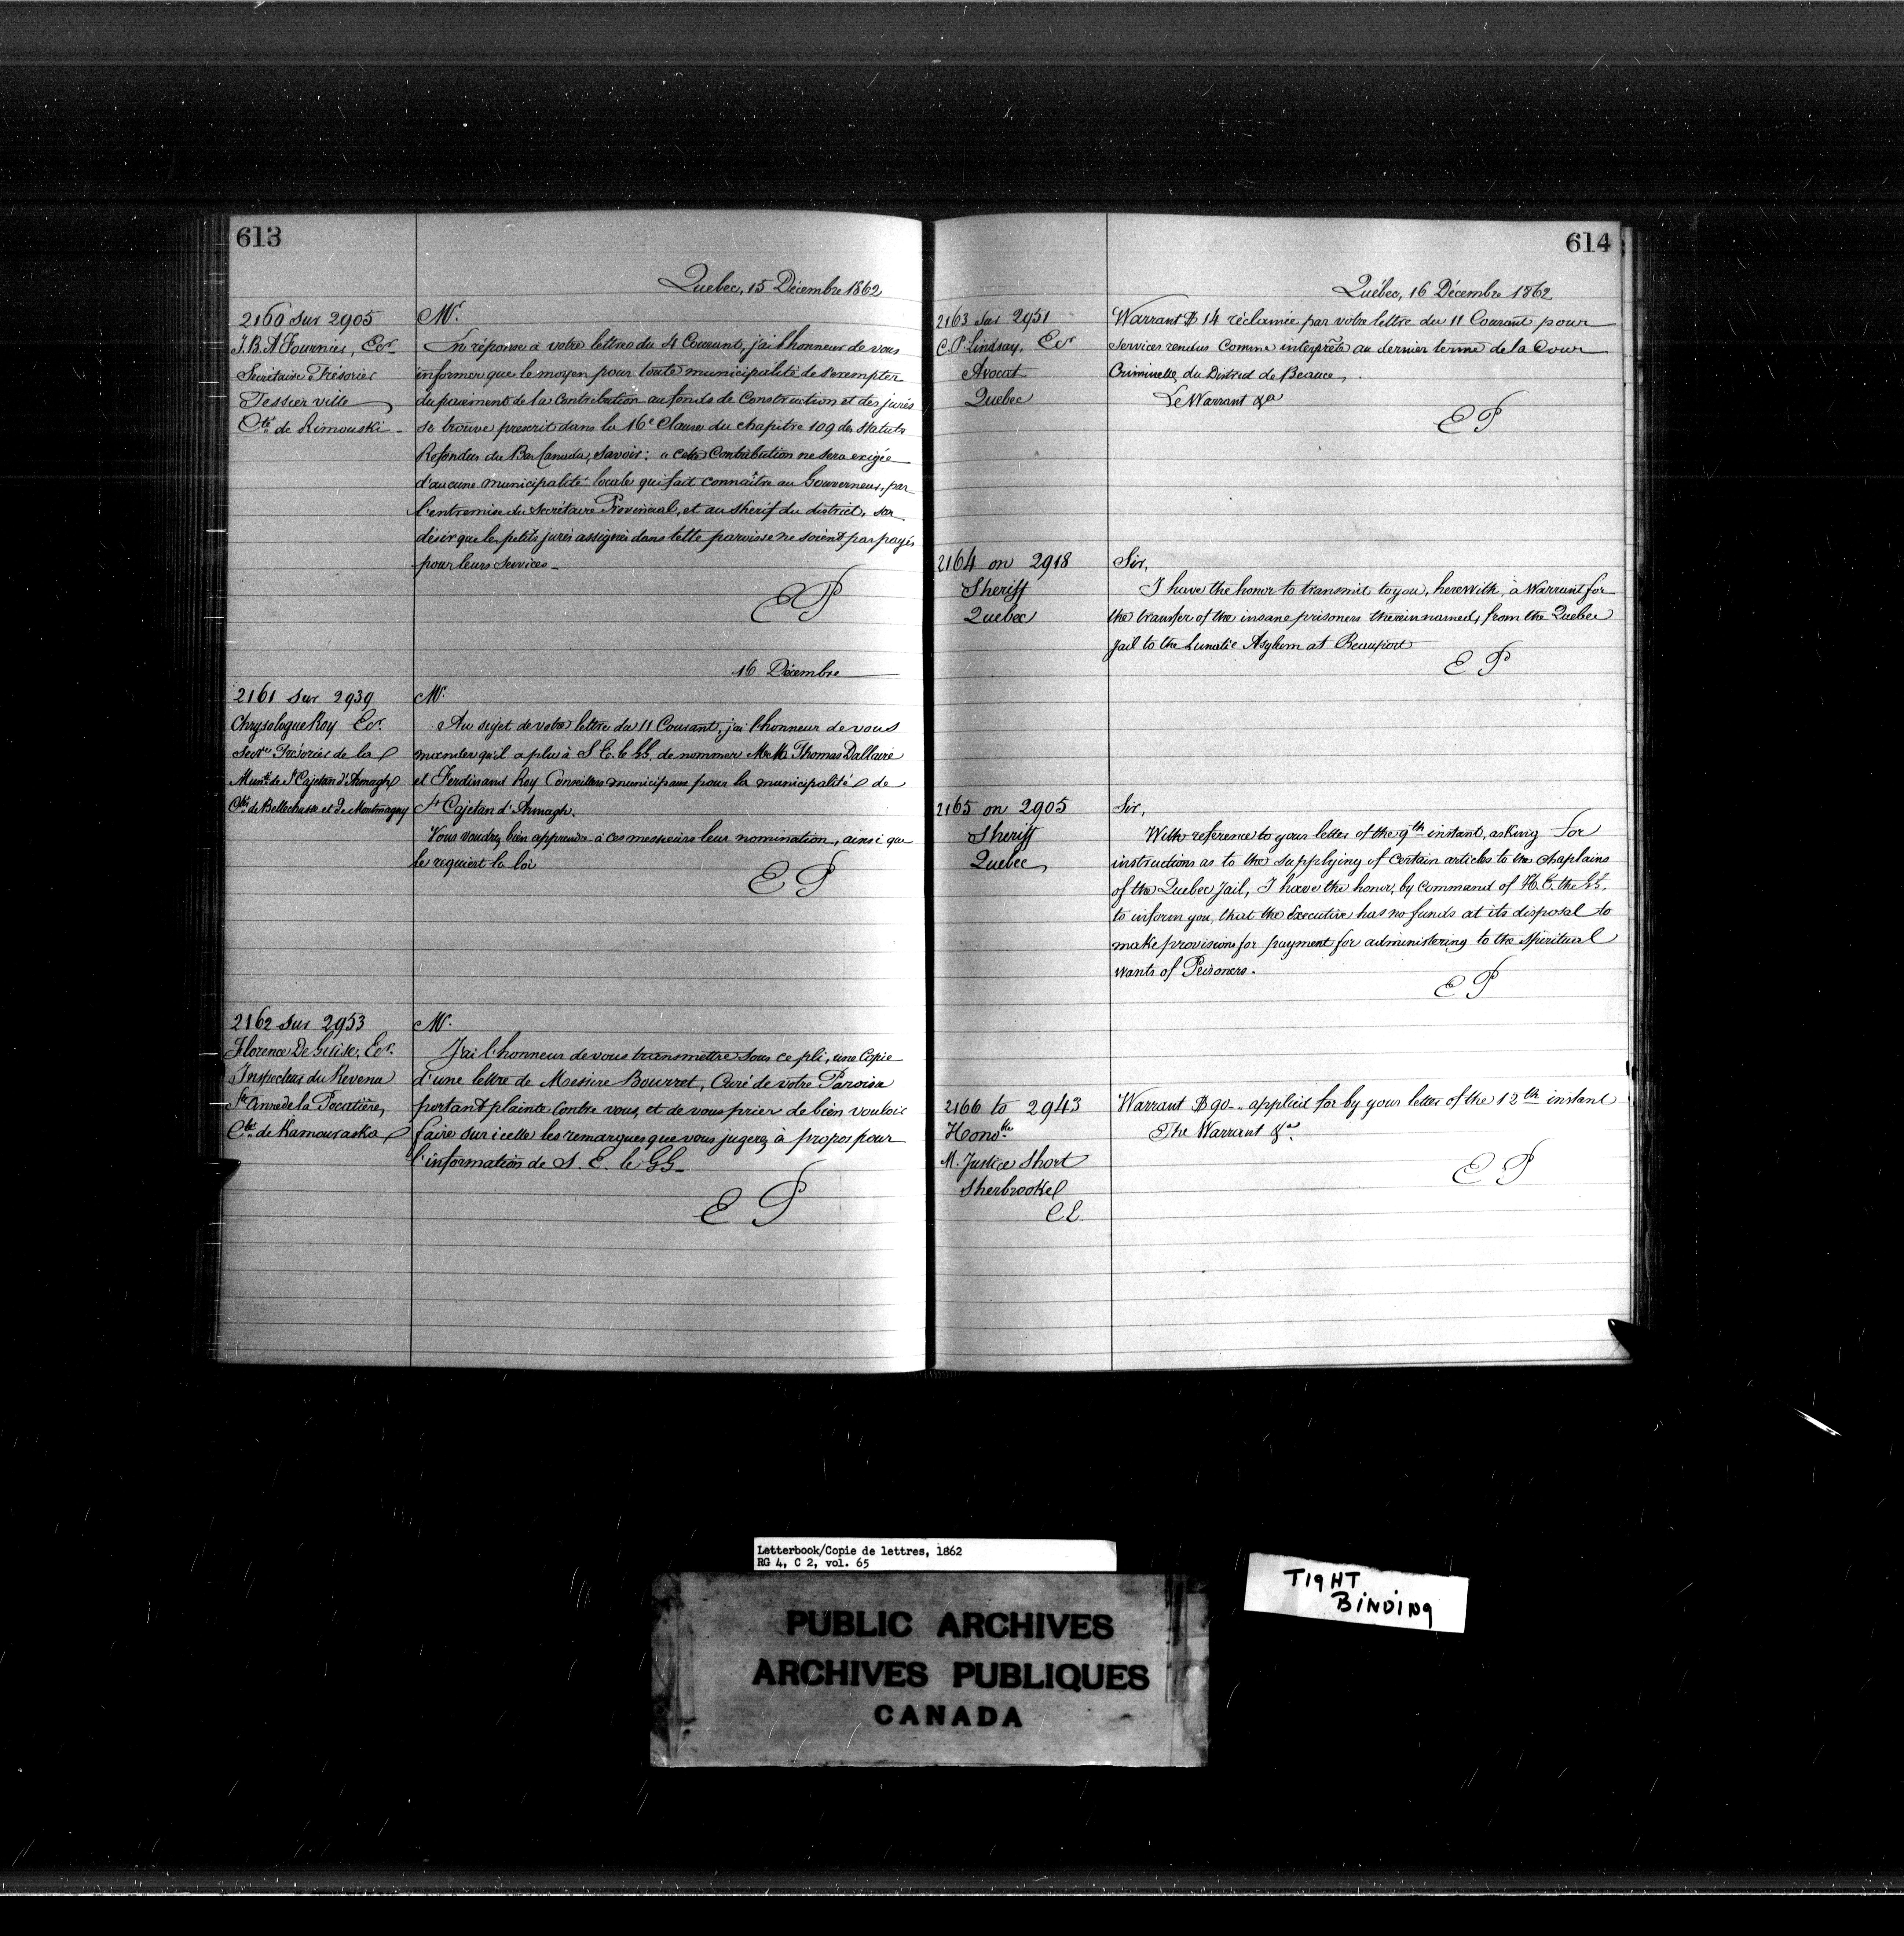 613
Quebec, 15 Décembre 1862
2160 sur 2905
J. B. A Fournier, Ecr
Secrétaire Trésorier
Tessierville
Cté de Rimouski
Mr.
En réponse à votre lettre du 4 Courant, j'ai l'honneur de vous
informer que le moyen pour toute municipalité de s'exempter
du paiement de la Contribution au fonds de Construction et des jurés
se trouve prescrit dans la 16e Clause du chapitre 109 des Statuts
Refondus du Bas Canada, savoir: "cette Contribution ne sera exigée
d'aucune municipalité locale qui fait connaître au Gouverneur, par
l'entremise du Secrétaire Provincial, et au Shérif du district, son
désir que les petits jurés assignés dans telle paroisse ne soient pas payés
pour leurs services_
E P
16 Décembre
2161 sur 2939
Chrysologue Roy Ecr.
Secre Trésorier de la
Munté de St Cajetan d'Armagh
Ctés de Bellechasse et de Montmagny
Mr.
Au sujet de votre lettre du 11 Courant, j'ai l'honneur de vous
mander qu'il a plu à S. E. le GG. de nommer MM. Thomas Dallaire
et Ferdinand Roy Conseillers municipaux pour la municipalité de
St Cajetan d'Armagh.
Vous voudrez bien apprendre à ces messieurs leur nomination, ainsi que
le requiert la loi
E P
2162 sur 2953
Florence DeGuise, Ecr.
Inspecteur du Revenu
Ste Anne de la Pocatière,
Cté de Kamouraska
Mr.
J'ai l'honneur de vous transmettre sous ce pli, une Copie
d'une lettre de Messire Bourret, Curé de votre Paroisse
portant plainte contre vous, et de vous prier de bien vouloir
faire sur icelle les remarques que vous jugerez à propos pour
l'information de S. E. le GG_
E P
614
Québec, 16 Décembre 1862
2163 sur 2951
C. P. Lindsay, Ecr
Avocat
Quebec
Warrant $ 14 réclamée par votre lettre du 11 Courant pour
services rendus Comme interprête au dernier terme de la Cour
Criminelle, du District de Beauce,
Le Warrant &a
E P
2164 on 2918
Sheriff
Quebec
Sir,
I have the honor to transmit to you, herewith, a Warrant for
the transfer of the insane prisoners therein named, from the Quebec
Jail to the Lunatic Asylum at Beauport
E P
2165 on 2905
Sheriff
Quebec
Sir,
With reference to your letter of the 9th instant, asking for
instructions as to the supplying of certain articles to the Chaplains
of the Quebec Jail, I have the honor, by Command of H. E. the GG.
to inform you, that the Executive has no funds at its disposal to
make provisions for payment for administering to the spiritual
wants of Prisoners.
E P
2166 to 2943
Honoble
M. Justice Short
Sherbrooke
C E
Warrant $ 90_ applied for by your letter of the 12th instant
The Warrant &a.
E P
Letterbook/Copie de lettres, 1862
RG 4, C 2, vol. 65
TIGHT
BINDING
PUBLIC ARCHIVES
ARCHIVES PUBLIQUES
CANADA